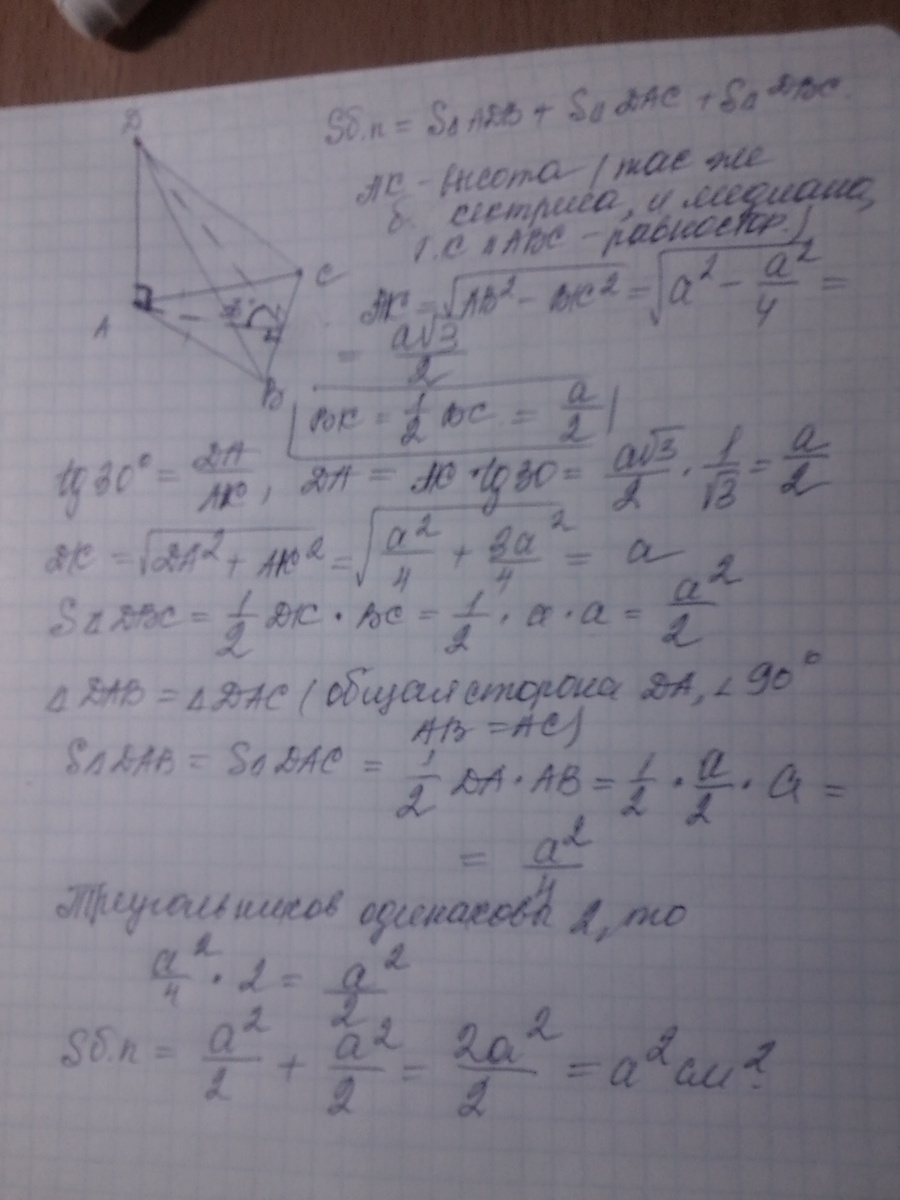 D
A
C
B
Sб.п = S△ADB + S△DAC + S△DBC.
AK - высота (так же
биссектриса, и медиана,
т.с △ABC - равностор.)
AK = √(AB² - BK²) = √(a² - a²/4) =
= a√3/2
BK = 1/2 BC = a/2
tg 30° = DA/AK, DA = AK · tg 30 = a√3/2 · 1/√3 = a/2
DK = √(DA² + AK²) = √(a²/4 + 3a²/4) = a
S△DBC = 1/2 DK · BC = 1/2 · a · a = a²/2
△DAB = △DAC (общая сторона DA, ∠90°
AB = AC)
S△DAB = S△DAC = 1/2 DA · AB = 1/2 · a/2 · a =
= a²/4
Треугольников одинаковы 2, то
a²/4 · 2 = a²/2
Sб.п = a²/2 + a²/2 = 2a²/2 = a² см².